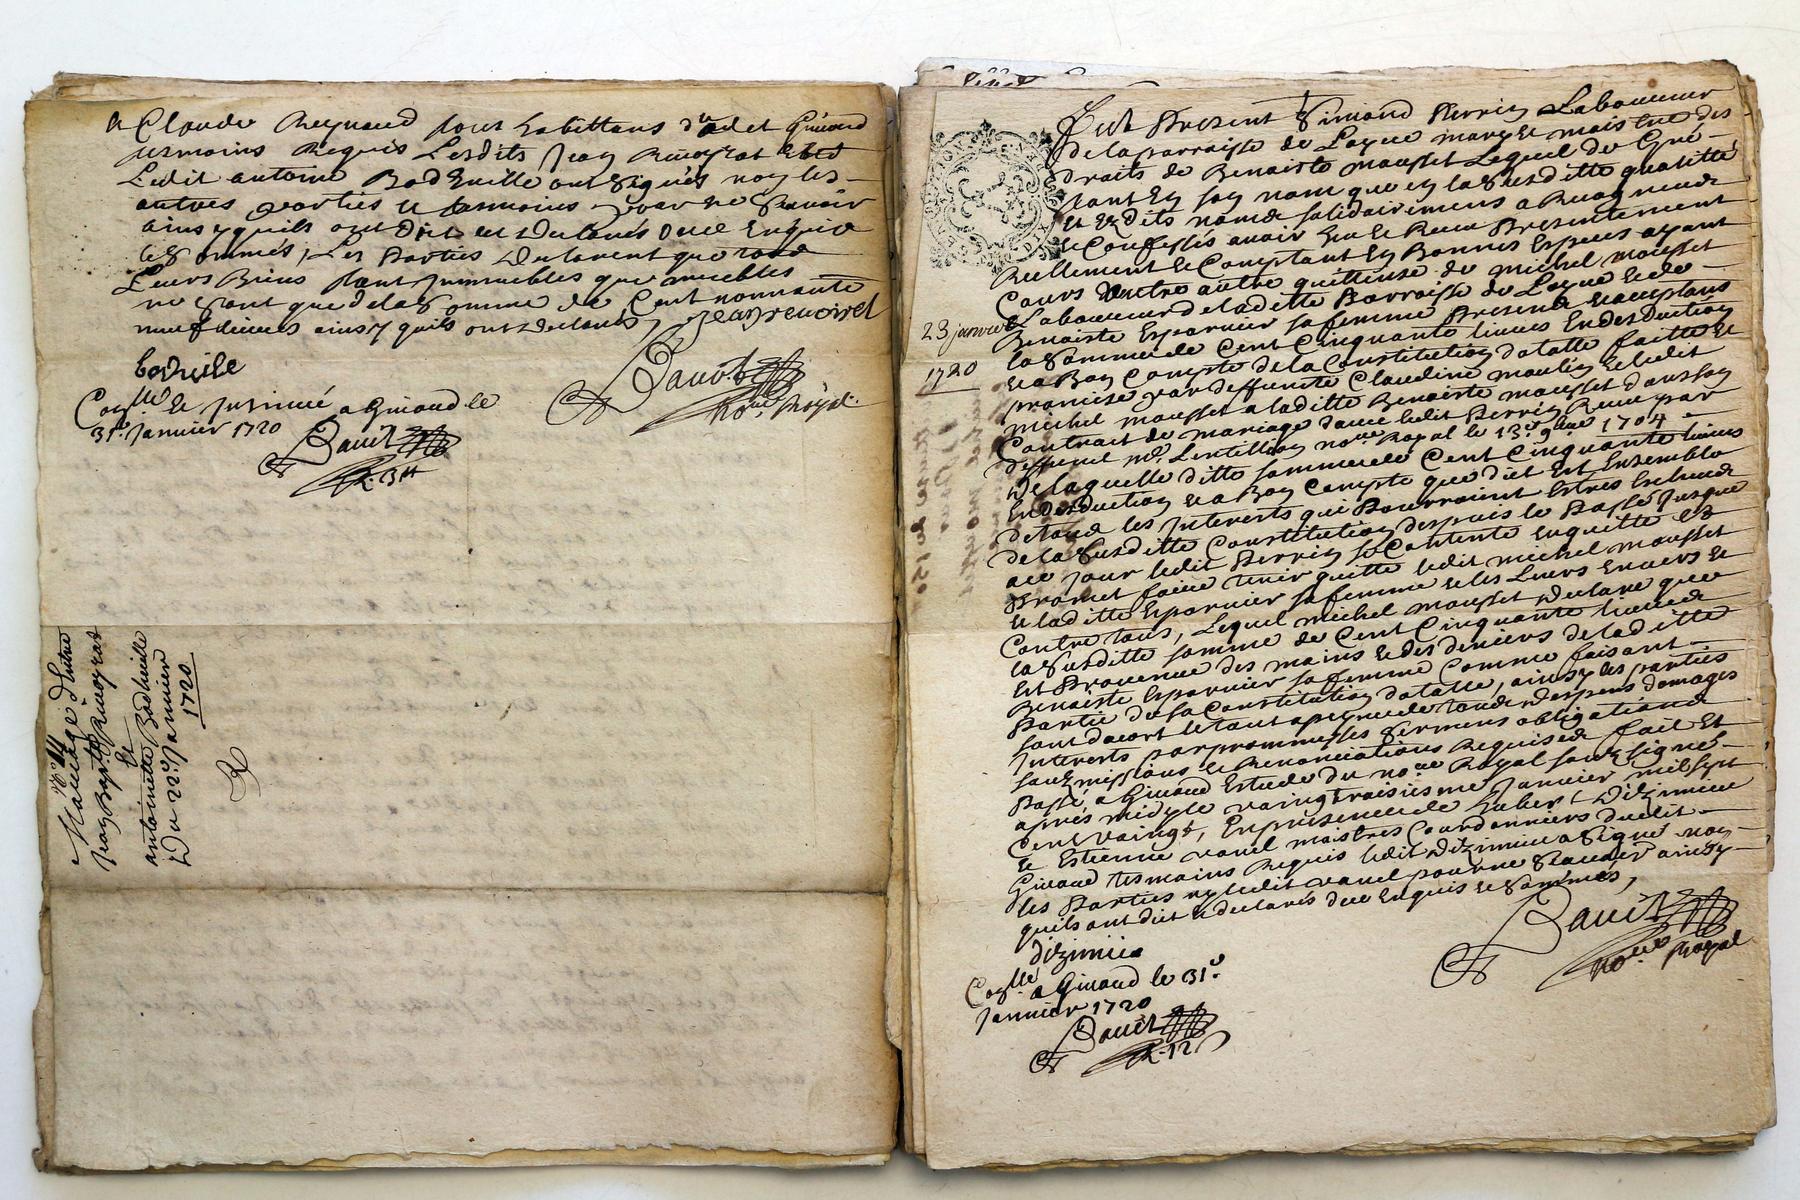 et Claude Reynaud tous habittans dudit Givord
tesmoins Requis Lesdits Jean Revoyrat et
Ledit antoine Bodheville ont Signés non les
autres parties et tesmoins pour ne Scavoir
ainsy quils ont dict et declarés deue Enquis
et Sommés, Les Parties declarent que tous
Leurs Biens tant Immeubles que meubles
ne sont que de la Somme de Cent nonnante
neuf livres ainsy quils ont declarés Jean revoirat
bodveile
Davit
no.re Royal
Con.llé et Insinué a Givord le
31.e Janvier 1720
Davit
R. 3tt
N.o 14
Mariage d'Entre
Jean Bapt.e Revoyrat
Et
antoinette Bodheville
Du 22.e Janvier
1720
23 janvier
1720
Fut Present Simond Perrin Laboureur
de la parroisse de Loyre mary et maistre des
droits de Benoiste mousset Lequel de Gré
tant En son nom que en la Susditte qualitté
et Esdits noms solidairement a Recogneu
et Confessés avoir Eu et Receu Presentement
Reellement et Comptant En Bonnes Especes ayant
Cours dentre autre quittense de michel mousset
Laboureur de laditte Parroisse de Loyre et de
Benoiste Esparvier sa femme Presents et acceptans
la Somme de Cent Cinquante livres En desduction
et a Bon Compte de la Constitution dotalle faitte et
promise par deffuncte Claudine moulin et ledit
michel mousset a laditte Benoiste mousset dans son
Contrait de mariage davec ledit Perrin Receu par
deffunct m.e Lentillon no.re Royal le 13.e 9bre 1704
de laquelle ditte somme de Cent Cinquante livres
En desduction et a Bon Compte que dict est Ensemble
de tous les Interests qui Pourroient Estres Escheus
de la Susditte Constitution despuis le Passé Jusque
a ce jour ledit Perrin se Contente Enquitte et
Promet faire tenir quitte ledit michel mousset
et laditte Esparvier sa femme et les Leurs Envers et
Contre tous, Lequel michel mousset declare que
la Susditte somme de Cent Cinquante livres
Est Provenue des mains et des deniers de laditte
Benoiste Esparvier sa femme Comme faisant
Partie de sa Constitution dotalle, ainsy les parties
sont dacort le tout a peyne de tous despens domages
Interests par prommesses sermens obligations
soubmissions et Renonciations Requises fait et
Passé a Givord Estude du no.re Royal soubsigné
apres midy le vaingtroisiesme Janvier mil sept
Cent vaingt, En presence de hubert dizimieu
et Estienne vanel maistres Cordonniers dudit
Givord tesmoins Requis ledit dizimieu a Signé non
les Parties ny ledit vanel pour ne Scavoir ainsy
quils ont dict et declarés deue Enquis et Sommés,
dizimieu
Davit
no.re Royal
Con.llé a Givord le 31.e
Janvier 1720
Davit
R. 12